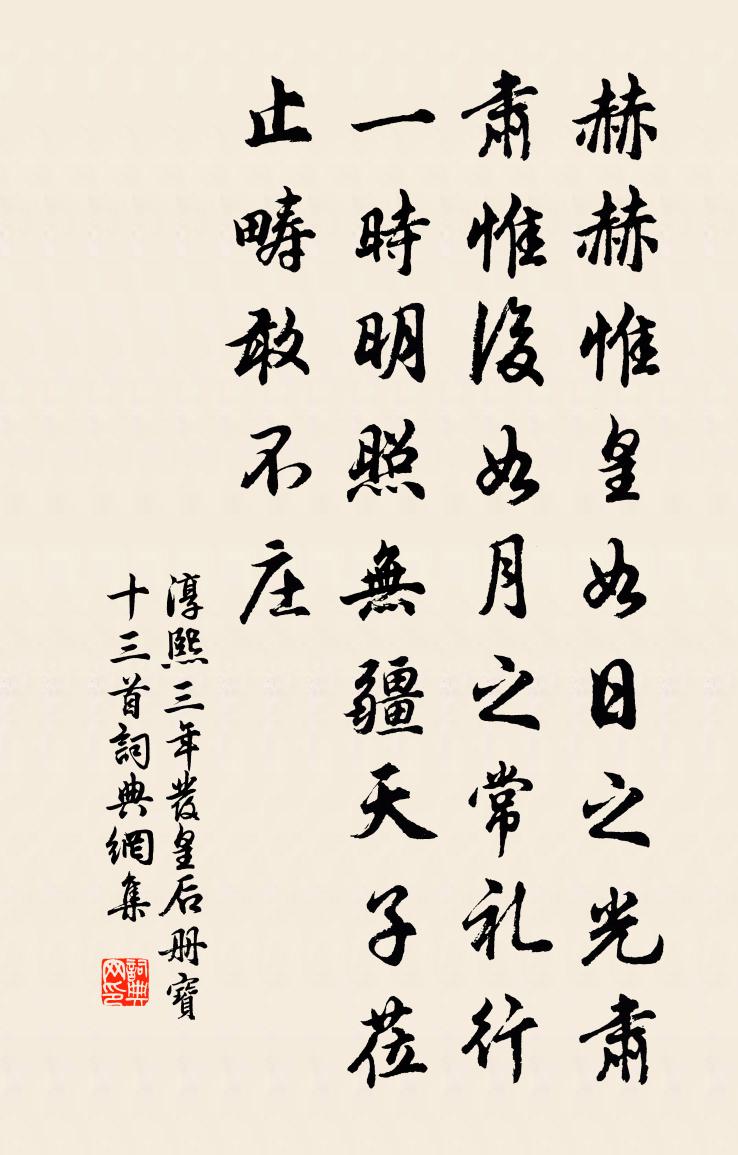 赫赫惟皇如日之光肅
肅惟後如月之常礼行
一時明照無疆天子莅
止疇敢不庄
淳熙三年發皇后册寶
十三首詞典網集
詞典網印